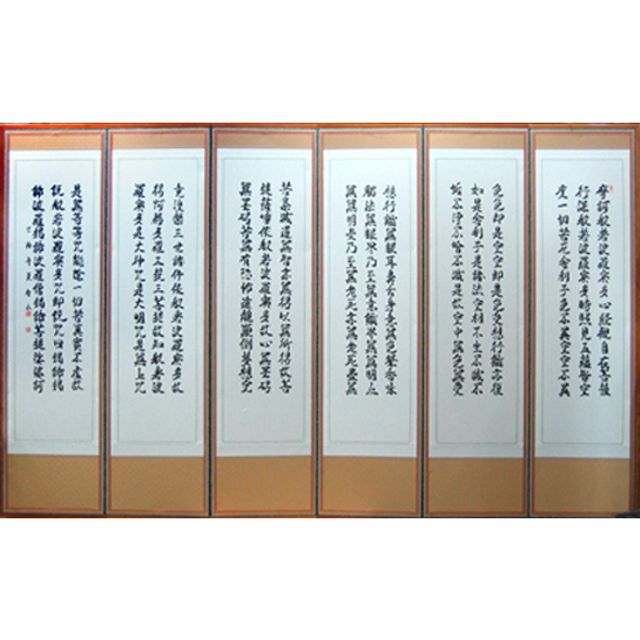 摩訶般若波羅蜜多心經觀自在菩薩
行深般若波羅蜜多時照見五蘊皆空
度一切苦厄舍利子色不異空空不異
色色卽是空空卽是色受想行識亦復
如是舍利子是諸法空相不生不滅不
垢不淨不增不減是故空中無色無受
想行識無眼耳鼻舌身意無色聲香味
觸法無眼界乃至無意識界無無明亦
無無明盡乃至無老死亦無老死盡無
苦集滅道無智亦無得以無所得故菩
提薩埵依般若波羅蜜多故心無罣碍
無罣碍故無有恐怖遠離顚倒夢想究
竟涅槃三世諸佛依般若波羅蜜多故
得阿耨多羅三藐三菩提故知般若波
羅蜜多是大神咒是大明咒是無上咒
是無等等咒能除一切苦眞實不虛故
說般若波羅蜜多咒卽說咒曰揭諦揭
諦波羅揭諦波羅僧揭諦菩提娑婆訶